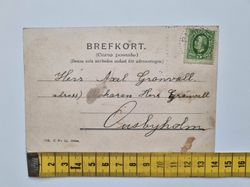 BREFKORT.
(Carte postale)
(Denna sida användes endast för adresseringen.)
Herr Axel Grönvall
adress) Herr Grönvall
Ousbyholm
1 2 3 4 5 6 7 8 9 10 11 12 13 14 15 16